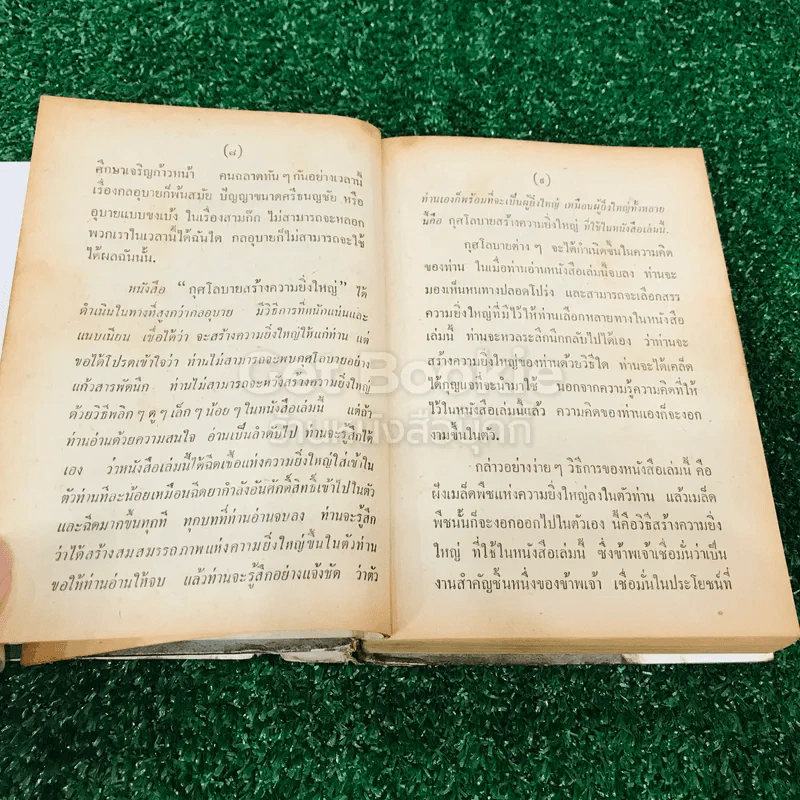 (๘)
ศึกษาเจริญก้าวหน้า คนฉลาดทัน ๆ กันอย่างเวลานี้
เรื่องกลอุบายก็พ้นสมัย ปัญญาขนาดศรีธนญชัย หรือ
อุบายแบบขงเบ้ง ในเรื่องสามก๊ก ไม่สามารถจะหลอก
พวกเราในเวลานี้ได้ฉันใด กลอุบายก็ไม่สามารถจะใช้
ได้ผลฉันนั้น.
หนังสือ “กุศโลบายสร้างความยิ่งใหญ่” ได้
ดำเนินในทางที่สูงกว่ากลอุบาย มีวิธีการที่หนักแน่นและ
แนบเนียน เชื่อได้ว่า จะสร้างความยิ่งใหญ่ให้แก่ท่าน แต่
ขอได้โปรดเข้าใจว่า ท่านไม่สามารถจะพบกุศโลบายอย่าง
แก้วสารพัดนึก ท่านไม่สามารถจะหวังสร้างความยิ่งใหญ่
ด้วยวิธีพลิก ๆ ดู ๆ เล็ก ๆ น้อย ๆ ในหนังสือเล่มนี้ แต่ถ้า
ท่านอ่านด้วยความสนใจ อ่านเป็นลำดับไป ท่านจะรู้สึกได้
เอง ว่าหนังสือเล่มนี้ได้ฉีดเชื้อแห่งความยิ่งใหญ่ใส่เข้าใน
ตัวท่านทีละน้อยเหมือนฉีดยากำลังอันศักดิ์สิทธิ์เข้าไปในตัว
และฉีดมากขึ้นทุกที ทุกบทที่ท่านอ่านจบลง ท่านจะรู้สึก
ว่าได้สร้างสมสมรรถภาพแห่งความยิ่งใหญ่ขึ้นในตัวท่าน
ขอให้ท่านอ่านให้จบ แล้วท่านจะรู้สึกอย่างแจ้งชัด ว่าตัว
(๙)
ท่านเองก็พร้อมที่จะเป็นผู้ยิ่งใหญ่ เหมือนผู้ยิ่งใหญ่ทั้งหลาย
นี้คือ กุศโลบายสร้างความยิ่งใหญ่ ที่ใช้ในหนังสือเล่มนี้.
กุศโลบายต่าง ๆ จะได้กำเนิดขึ้นในความคิด
ของท่าน ในเมื่อท่านอ่านหนังสือเล่มนี้จบลง ท่านจะ
มองเห็นหนทางปลอดโปร่ง และสามารถจะเลือกสรร
ความยิ่งใหญ่ที่มีไว้ให้ท่านเลือกหลายทางในหนังสือ
เล่มนี้ ท่านจะหวลระลึกนึกกลับไปได้เอง ว่าท่านจะ
สร้างความยิ่งใหญ่ของท่านด้วยวิธีใด ท่านจะได้เคล็ด
ได้กุญแจที่จะนำมาใช้ นอกจากความรู้ความคิดที่ให้
ไว้ในหนังสือเล่มนี้แล้ว ความคิดของท่านเองก็จะงอก
งามขึ้นในตัว.
กล่าวอย่างง่าย ๆ วิธีการของหนังสือเล่มนี้ คือ
ฝังเมล็ดพืชแห่งความยิ่งใหญ่ลงในตัวท่าน แล้วเมล็ด
พืชนั้นก็จะงอกออกไปในตัวเอง นี้คือวิธีสร้างความยิ่ง
ใหญ่ ที่ใช้ในหนังสือเล่มนี้ ซึ่งข้าพเจ้าเชื่อมั่นว่าเป็น
งานสำคัญชิ้นหนึ่งของข้าพเจ้า เชื่อมั่นในประโยชน์ที่
Get Bookie
ร้านหนังสือมุกุ